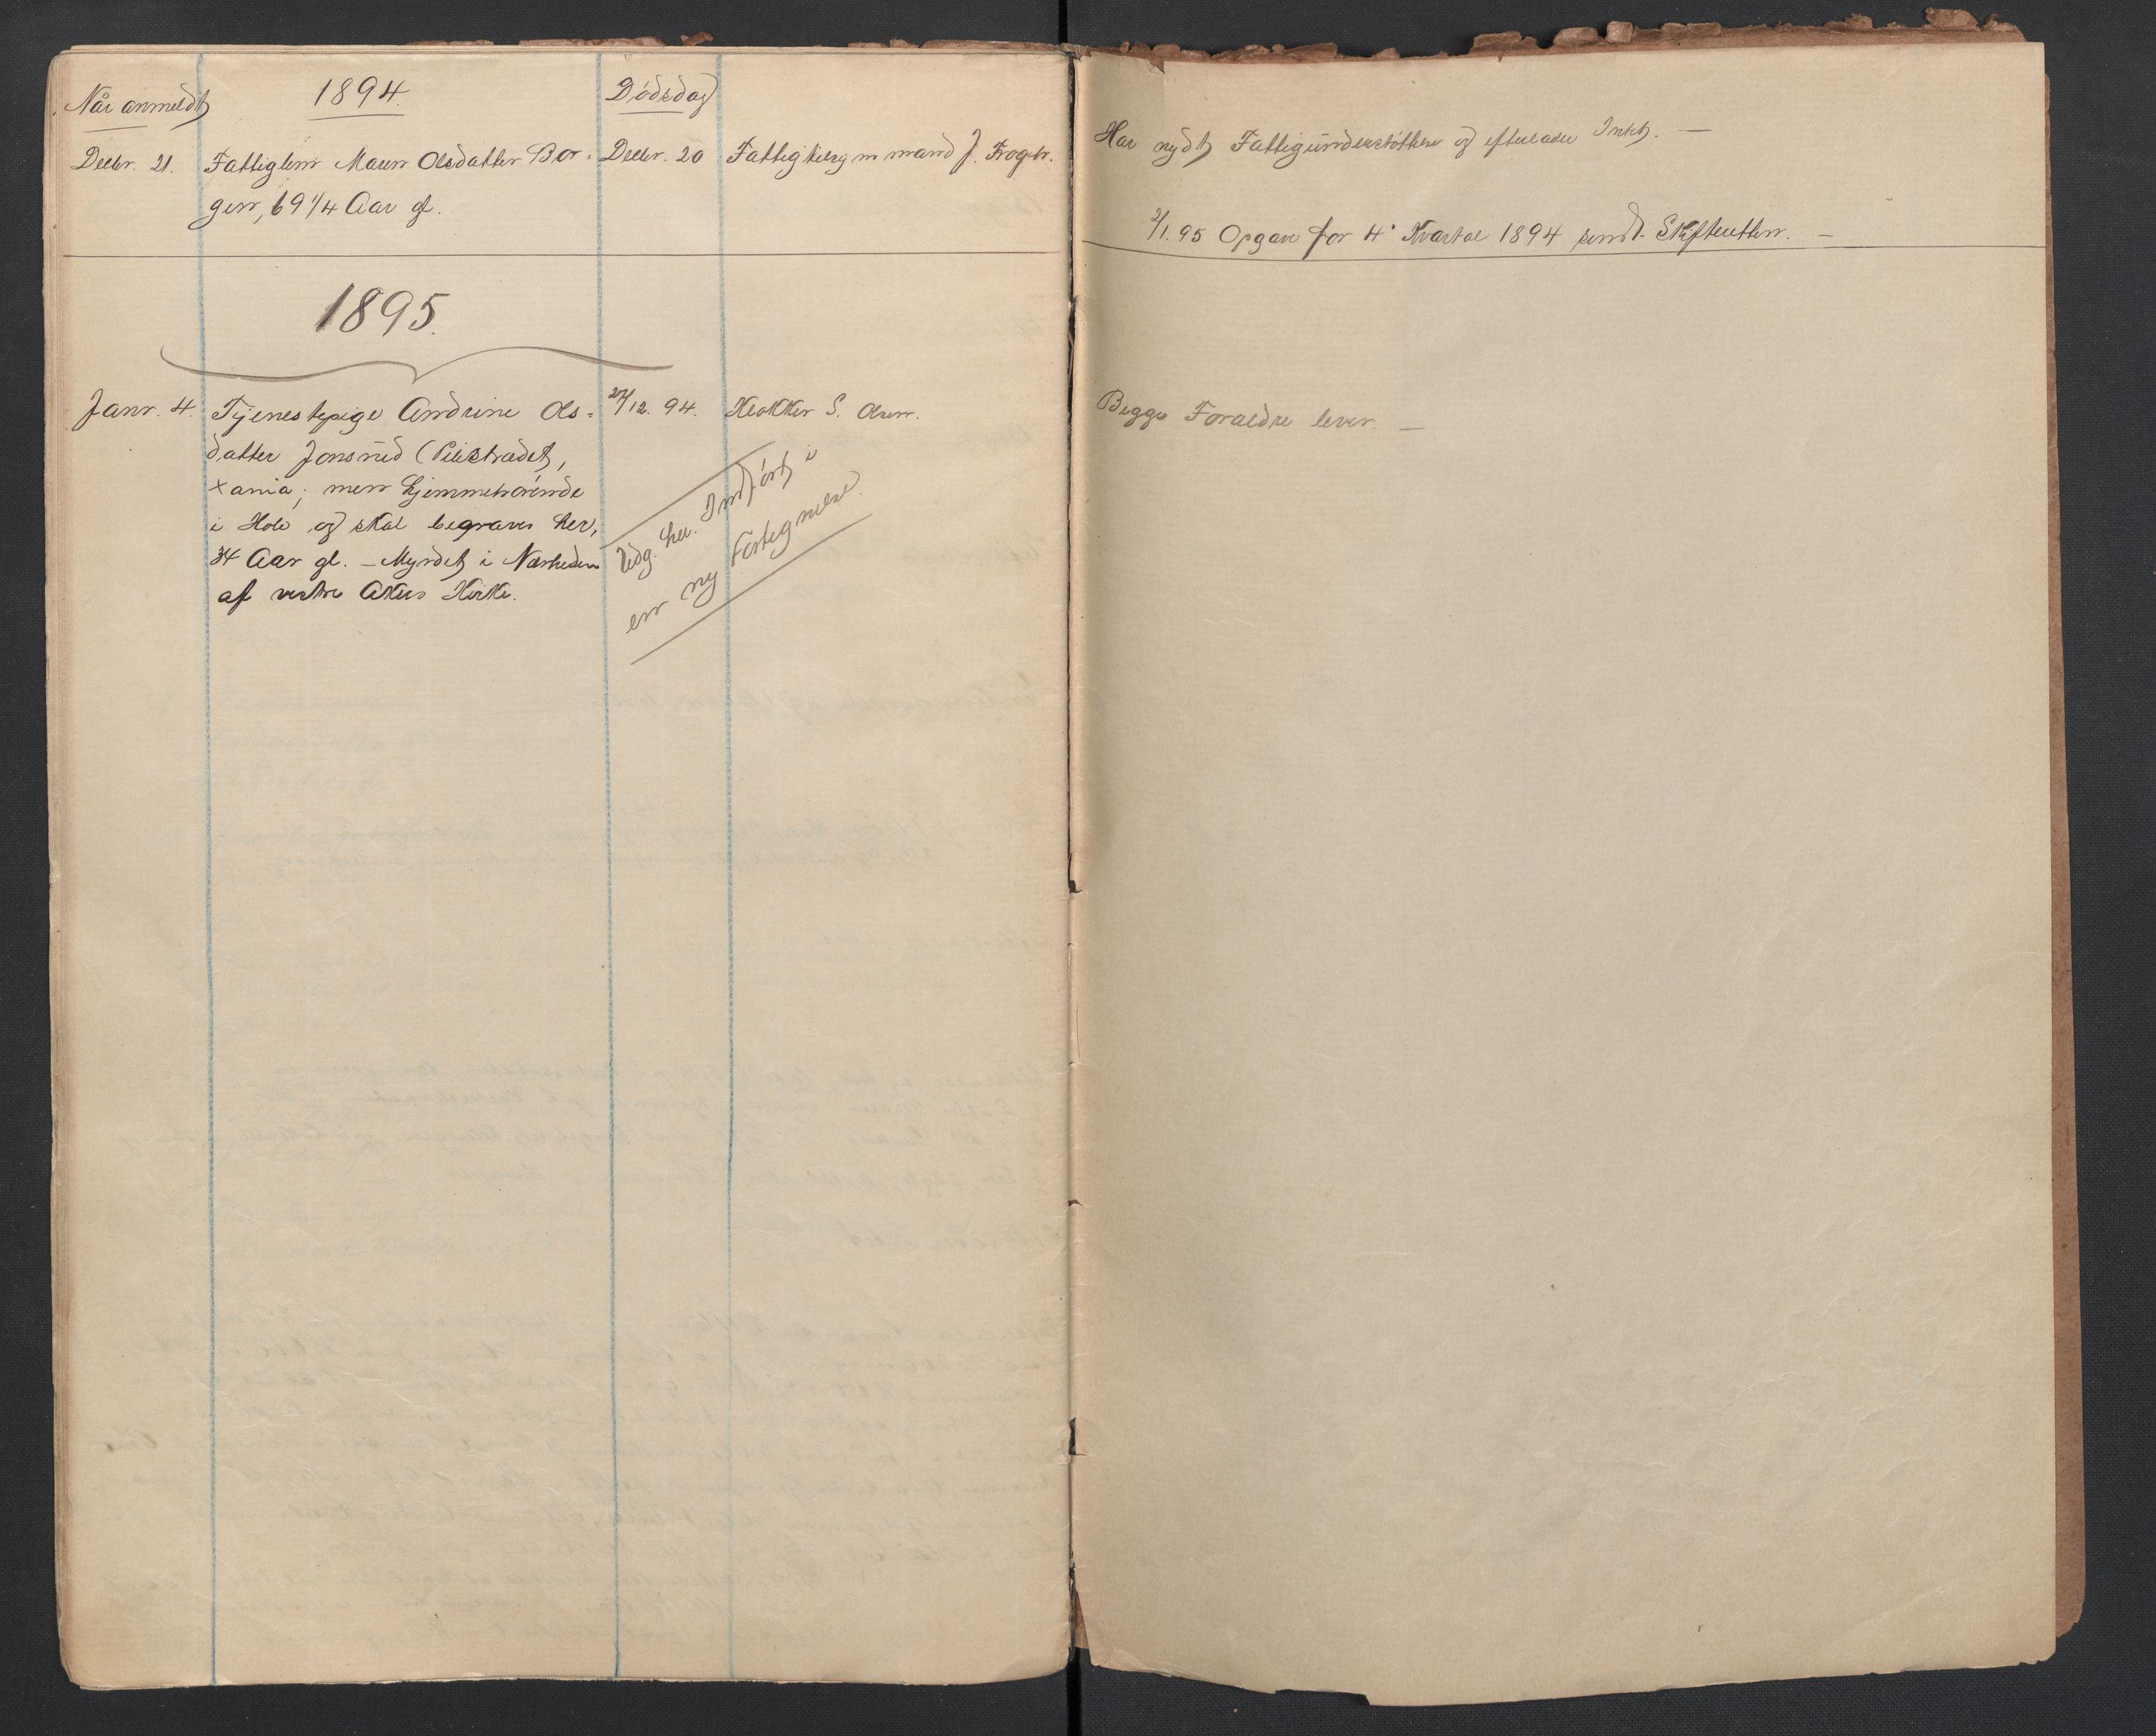 Når anmeldt
1894.
Dødsdag
Decbr. 21. Fattiglem Maren Olsdatter Bor- Decbr. 20 Fattigtilsynsmand J. Frogh.
gen, 69 1/4 Aar gl.
1895.
Janr. 4. Tjenestepige Andrine Ols- 27/12. 94. Klokker S. Olsen.
datter Jonsrud (Pilestrædet,
Xania; men hjemmehørende
i Hole og skal begraves her,
34 Aar gl. – Myrdet i Nærheden
af vestre Akers Kirke.
Udg. her. Indført i
en ny Fortegnelse.
Har nydt Fattigunderstøttelse og efterlader Intet. —
2/1. 95 Opgave for 4' Kvartal 1894 sendt Skifteretten. —
Begge Forældre lever. —